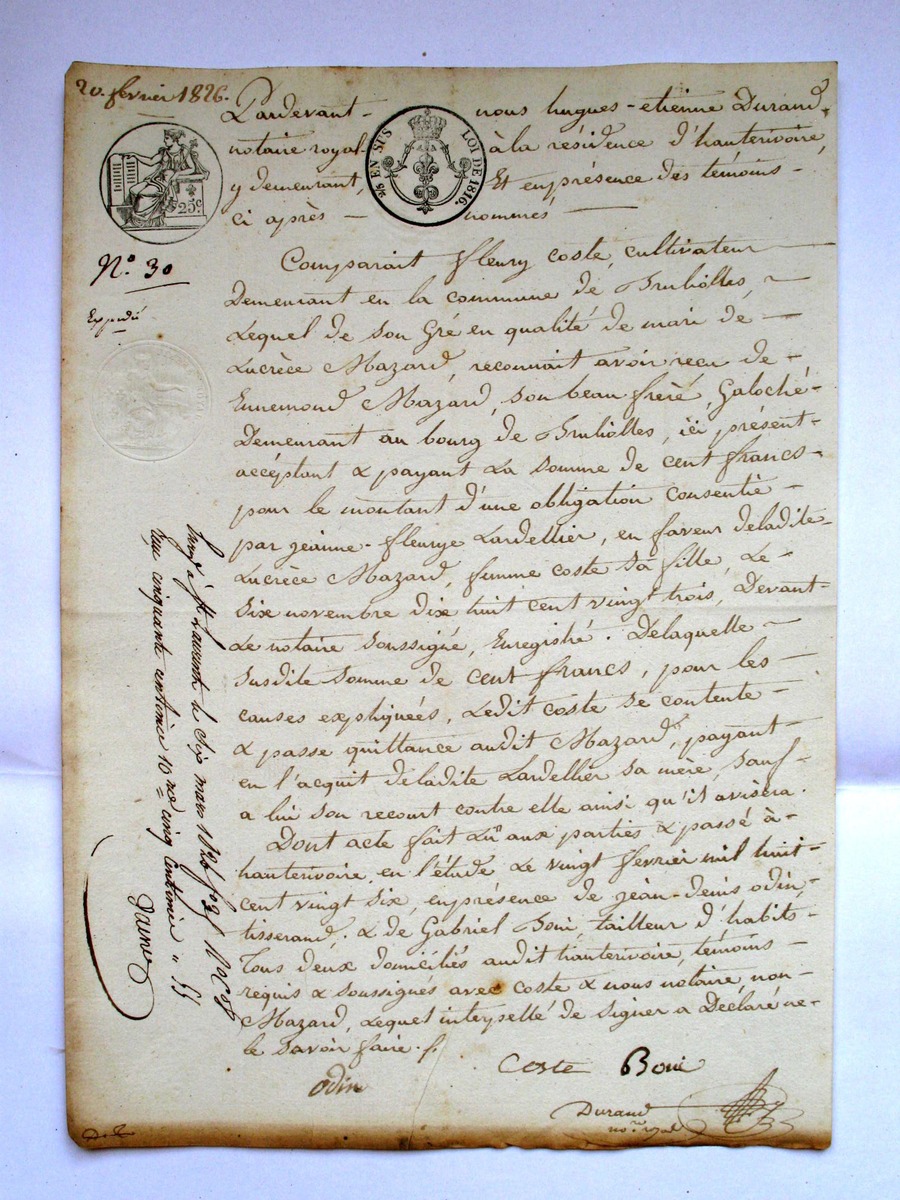 20. février 1826.
Pardevant - nous hugues-etienne Durand,
notaire royal à la résidence d'hauterivoire,
y demeurant, Et en présence des témoins -
ci après - nommés
2/5 EN SUS LOI DE 1816.
25c.
N.° 30
Expédié
Comparait fleury coste, cultivateur
Demeurant en la commune de Brullolles,
Lequel de son Gré en qualité de mari de -
Lucrèce Mazard, reconnait avoir reçu de -
Ennemond Mazard, son beau frère, Galoché-
Demeurant au bourg de Brullolles, ici présent-
accéptant & payant La somme de cent francs-
pour le montant d'une obligation consentie -
par jeanne-fleurye Lardellier, en faveur deladite
Lucrèce Mazard, femme coste sa fille, Le -
Six novembre dix huit cent vingt trois, Devant-
Le notaire soussigné, Enregistré. Delaquelle -
susdite somme de cent francs, pour les -
causes expliquées, Ledit coste se contente -
& passe quittance audit Mazard, payant -
en l'acquit deladite Lardellier sa mère, sauf -
a lui son recourt contre elle ainsi qu'il avisera.
Dont acte fait Lu aux parties & passé à -
hauterivoire, en l'étude Le vingt fevrier mil huit -
cent vingt six, enprésence de jean-denis odin,
tisserand, & de Gabriel Boui, tailleur d'habits-
Tous deux domiciliés audit hauterivoire, témoins -
requis & soussignés avec coste & nous notaire, non -
Mazard, Lequel interpellé de signer a Déclaré ne-
le savoir faire.
coste Boui
odin
Durand
no.re royal
St Laurent le six mars 1826 f.°
cinquante centimes 10.me cinq centimes " 55